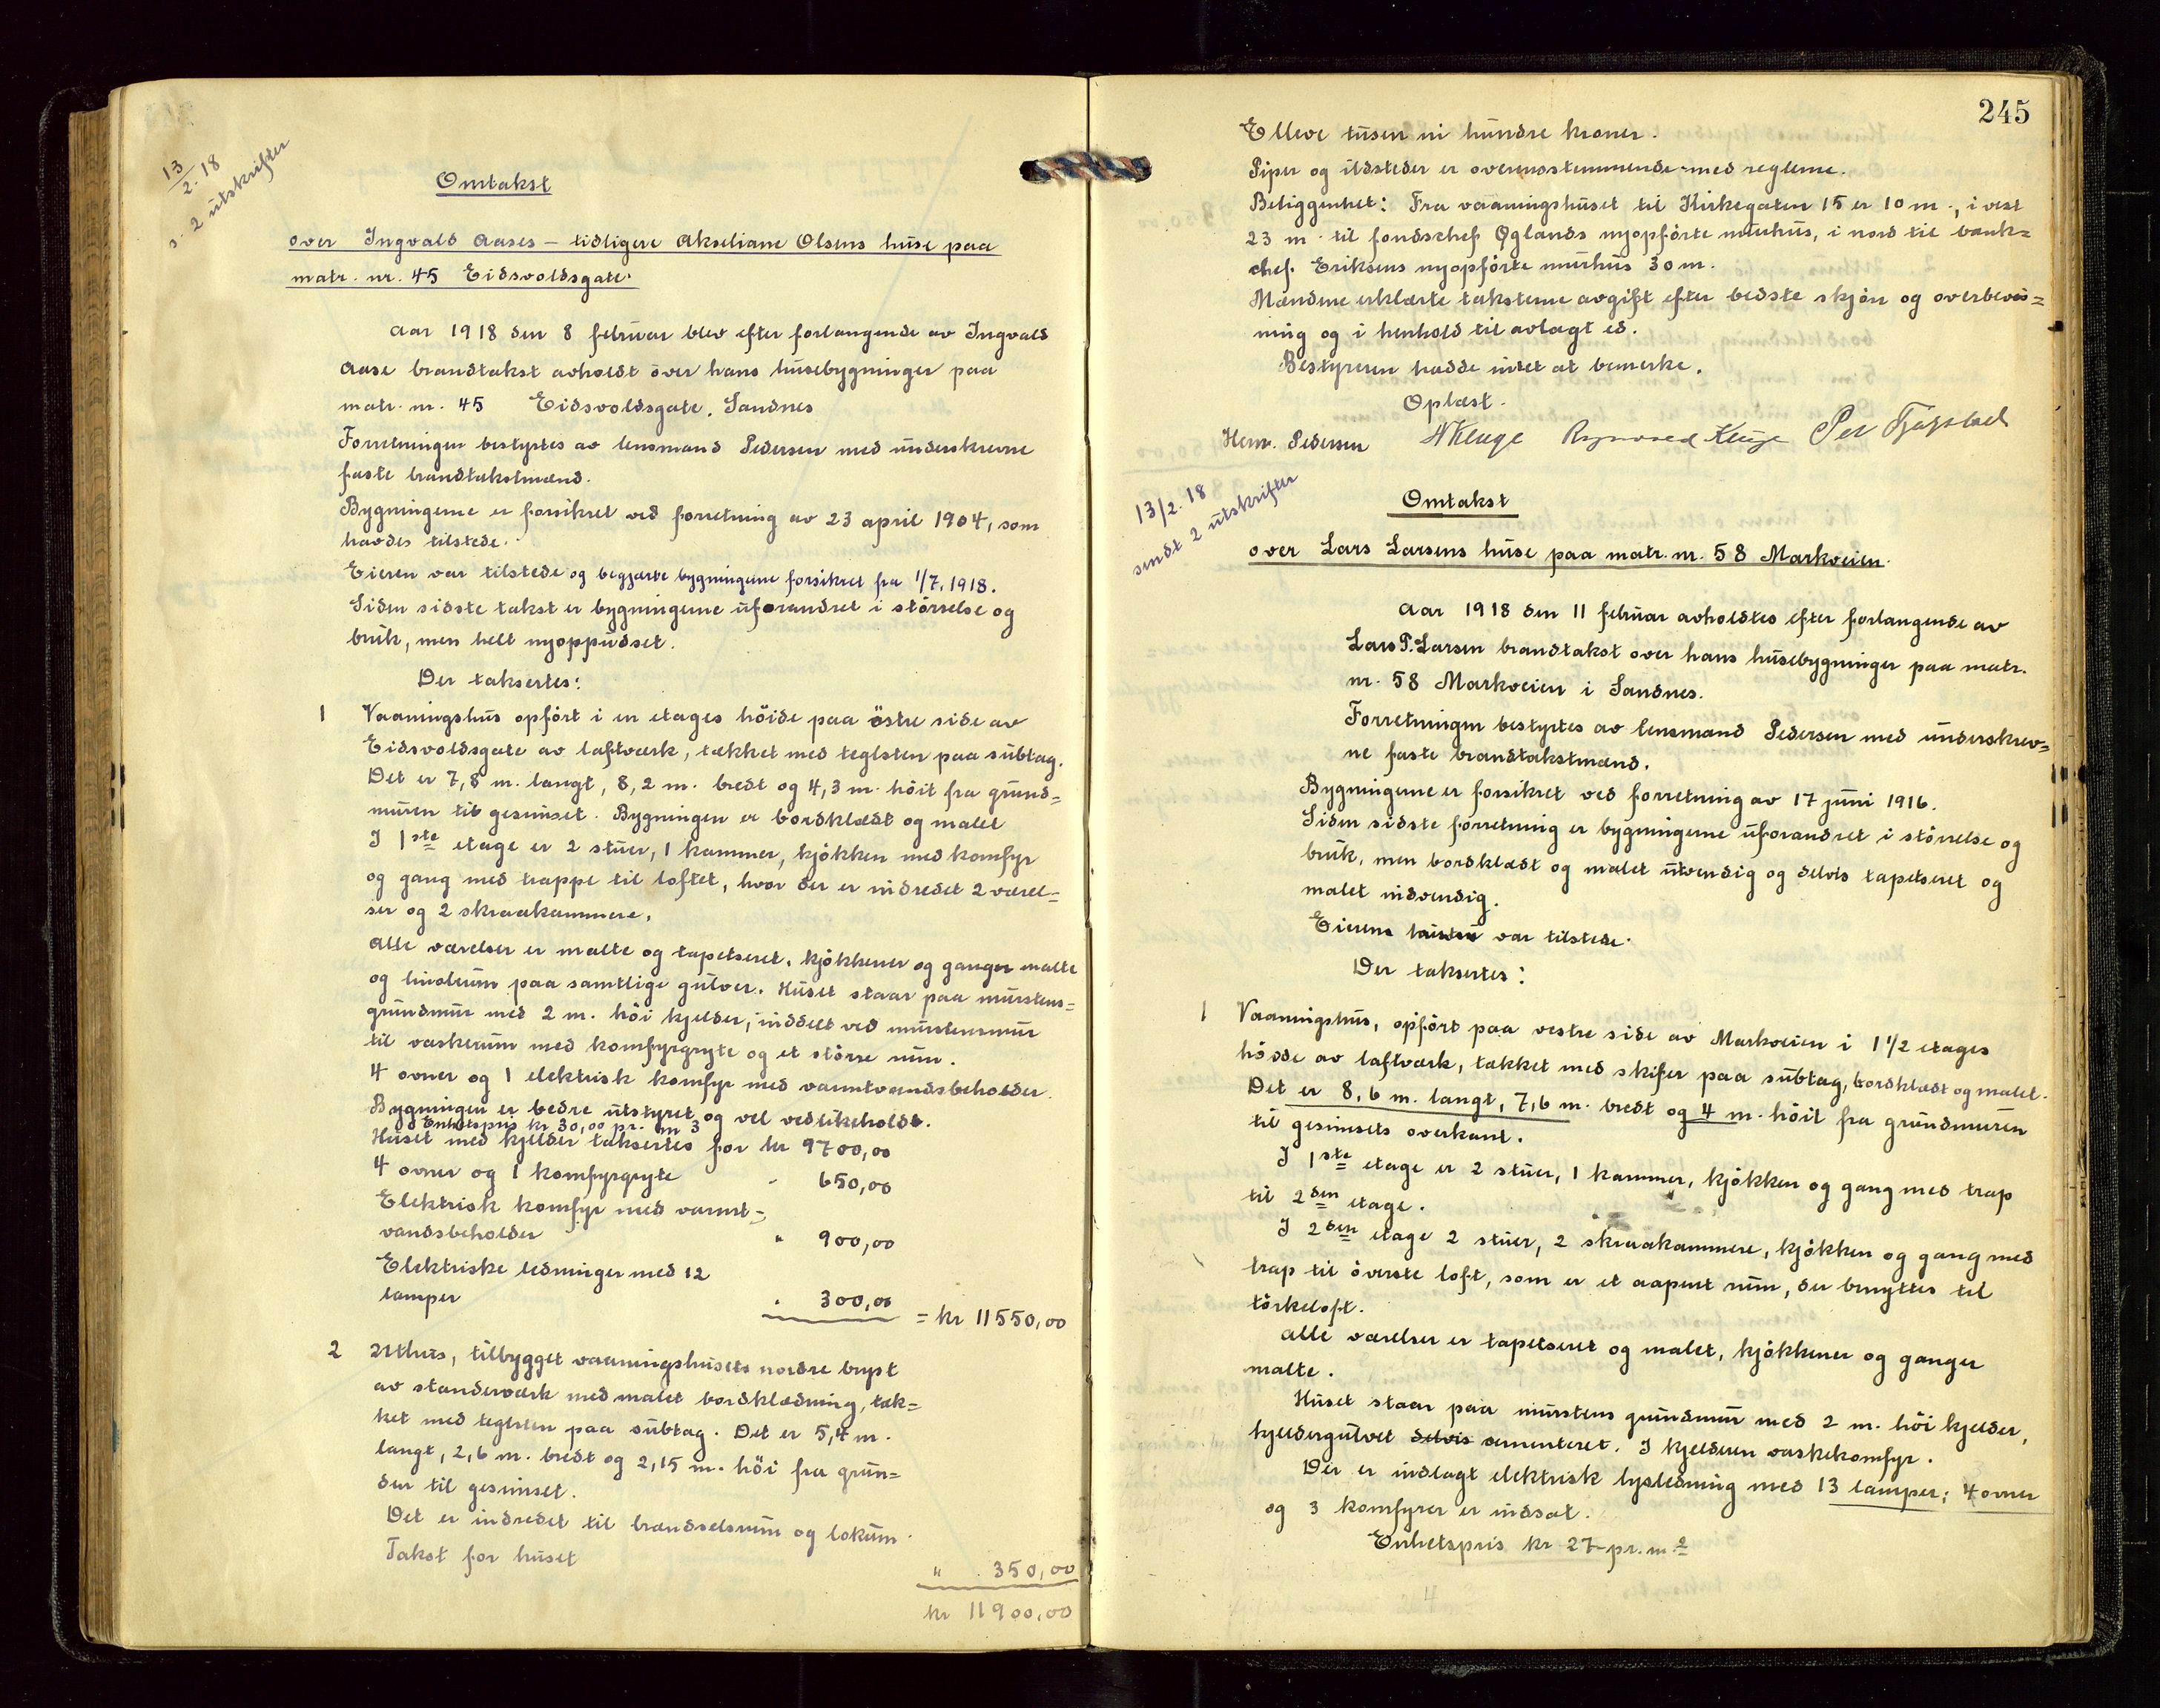 13/2. 18
s. 2 utskrifter
Omtakst
over Ingvald Aases – tidligere Akseliane Olsens huse paa
matr. nr. 45 Eidsvoldsgate.
Aar 1918 den 8 februar blev efter forlangende av Ingvald
Aase brandtakst avholdt over hans husebygninger paa
matr. nr. 45 Eidsvoldsgate, Sandnes
Forretningen bestyrtes av lensmand Pedersen med underskrevne
faste brandtakstmænd.
Bygningerne er forsikret ved forretning av 23 april 1904, som
havdes tilstede.
Eieren var tilstede og begjærte bygningerne forsikret fra 1/7. 1918.
Siden sidste takst er bygningerne uforandret i størrelse og
bruk, men helt nyoppudset.
Der taksertes:
1 Vaaningshus opført i en etages høide paa östre side av
Eidsvoldsgate av laftværk, tækket med teglsten paa subtag.
Det er 7,8 m. langt, 8,2 m. bredt og 4,3 m. höit fra grund=
muren til gesimset. Bygningen er bordklædt og malet
I 1ste etage er 2 stuer, 1 kammer, kjøkken med komfyr
og gang med trappe til loftet, hvor der er indredet 2 værel=
ser og 2 skraakammere.
Alle værelser er malte og tapetseret, kjøkkener og ganger malte
og linoleum paa samtlige gulver. Huset staar paa murstens=
grundmur med 2 m. höi kjelder, inddelt ved murstensmur
til vaskerum med komfyrgryte og et större rum.
4 ovner og 1 elektrisk komfyr med varmtvandsbeholder.
Bygningen er bedre utstyret og vel vedlikeholdt.
Enhetspris kr 30,00 pr. m 3
Huset med kjelder taksertes for kr 9700,00
4 ovner og 1 komfyrgryte " 650,00
Elektrisk komfyr med varmt=
vandsbeholder " 900,00
Elektriske ledninger med 12
lamper " 300,00 = kr 11550,00
2 Uthus, tilbygget vaaningshusets nordre bryst
av standerværk med malet bordklædning, tæk=
ket med teglsten paa subtag. Det er 5,4 m.
langt, 2,6 m. bredt og 2,15 m. höi fra grun=
den til gesimset.
Det er indredet til brændselsrum og lokum.
Takst for huset " 350,00
kr 11900,00
245
Elleve tusen ni hundre kroner.
Piper og ildsteder er overensstemmende med reglerne.
Beliggenhet: Fra vaaningshuset til Kirkegaten 15 er 10 m., i vest
23 m. til fondschef Øglands nyopførte murhus, i nord til bank=
chef Eriksens nyopførte murhus 30 m.
Mændene erklærte taksterne avgift efter bedste skjön og overbevis=
ning og i henhold til avlagt ed.
Bestyreren hadde intet at bemerke.
Oplæst.
Henr. Pedersen Kluge Kluge Per
13/2. 18
sendt 2 utskrifter
Omtakst
over Lars Larsens huse paa matr. nr. 58 Markveien.
Aar 1918 den 11 februar avholdtes efter forlangende av
Lars P. Larsen brandtakst over hans husebygninger paa matr.
nr. 58 Markveien i Sandnes.
Forretningen bestyrtes av lensmand Pedersen med underskrev=
ne faste brandtakstmænd.
Bygningerne er forsikret ved forretning av 17 juni 1916.
Siden sidste forretning er bygningerne uforandret i störrelse og
bruk, men bordklædt og malet utvendig og delvis tapetseret og
malet indvendig.
Eierens hustru var tilstede.
Der taksertes:
1 Vaaningshus, opført paa vestre side av Markveien i 1 1/2 etages
höide av laftværk, tækket med skifer paa subtag, bordklædt og malet.
Det er 8,6 m. langt, 7,6 m. bredt og 4 m. höit fra grundmuren
til gesimsets overkant.
I 1ste etage er 2 stuer, 1 kammer, kjökken og gang med trap
til 2den etage.
I 2den etage 2 stuer, 2 skraakammere, kjökken og gang med
trap til överste loft, som er et aapent rum, der benyttes til
törkeloft.
Alle værelser er tapetseret og malet, kjökkener og ganger
malte.
Huset staar paa murstens grundmur med 2 m. höi kjelder,
kjeldergulvet delvis sementeret. I kjelderen vaskekomfyr.
Der er indlagt elektrisk lysledning med 13 lamper; 4 ovner
og 3 komfyrer er indsat.
Enhetspris kr 27 pr. m 2